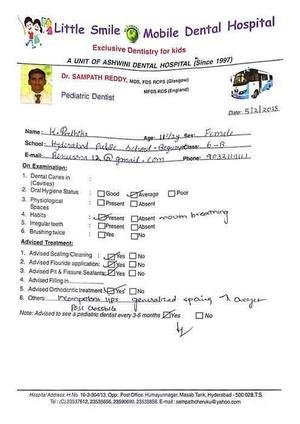 Little Smile Mobile Dental Hospital
Exclusive Dentistry for kids
A UNIT OF ASHWINI DENTAL HOSPITAL (Since 1997)
Dr. SAMPATH REDDY, MDS, FDS RCPS (Glasgow)
MFDS RCS (England)
Pediatric Dentist
Date: 5/2/2015
Name: K. Age: 11 1/2y Sex: Female
School: Hyderabad Public School - Class: 6-B
E-mail: @gmail.com Phone:
On Examination:
1. Dental Caries in (Cavities)
2. Oral Hygiene Status : Good Average Poor
3. Physiological Spaces : Present Absent
4. Habits : Present Absent mouth breathing
5. Irregular teeth : Present Absent
6. Brushing twice : Yes No
Advised Treatment:
1. Advised Scaling Cleaning : Yes No
2. Advised Flouride application : Yes No
3. Advised Pit & Fissure Sealants : Yes No
4. Advised Filling in
5. Advised Orthodontic treatment : Yes No
6. Others: Incompetent lips generalized spacing
Post crossbite
Note: Advised to see a pediatric dentist every 3-6 months Yes No
Hospital Address: H.No. 10-3-304/13, Opp: Post Office, Humayunnagar, Masab Tank, Hyderabad - 500 028.T.S.
Tel: (C) 23537612, 23535856, 23590690, 23535858. E-mail: sampathcheruku@yahoo.com